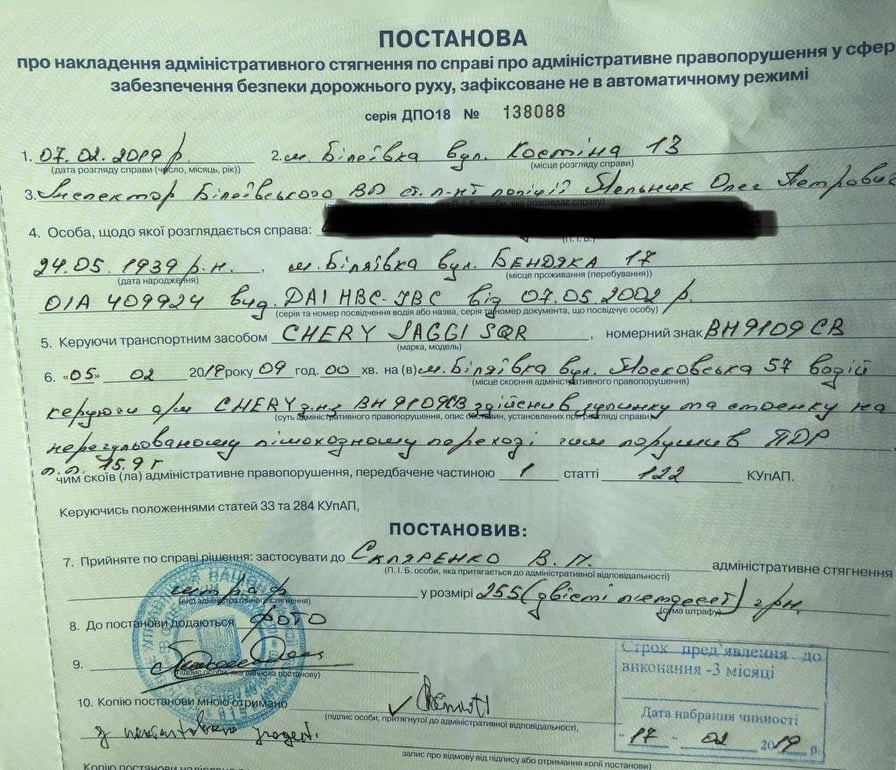 ПОСТАНОВА
про накладення адміністративного стягнення по справі про адміністративне правопорушення у сфер
забезпечення безпеки дорожнього руху, зафіксоване не в автоматичному режимі
серія ДПО18 № 138088
1. 07.02.2019 р. 2. м. Біляївка вул. Костіна 13
(дата розгляду справи (число, місяць, рік)) (місце розгляду справи)
3. Інспектор Біляївського ВП ст. л-нт поліції Мельник Олег Петрович
4. Особа, щодо якої розглядається справа:
24.05.1939 р.н. м. Біляївка вул. БЕНДЯКА 17
(дата народження) (місце проживання (перебування))
ОІА 409924 вид. ДАІ НВС-УВС від 07.05.2002 р.
(серія та номер посвідчення водія або назва, серія та номер документа, що посвідчує особу)
5. Керуючи транспортним засобом CHERY JAGGI SQR, номерний знак ВН9109СВ
(марка, модель)
6. «05» 02 2019 року 09 год. 00 хв. на (в) м. Біляївка вул. Московська 57 водій
(місце скоєння адміністративного правопорушення)
керуючи а/м CHERY д.н.з ВН9109СВ здійснив зупинку та стоянку на
(суть адміністративного правопорушення, опис обставин, установлених при розгляді справи)
нерегульованому пішохідному переході чим порушив ПДР
п.п. 15.9 г
чим скоїв (ла) адміністративне правопорушення, передбачене частиною 1 статті 122 КУпАП.
Керуючись положеннями статей 33 та 284 КУпАП,
ПОСТАНОВИВ:
7. Прийняте по справі рішення: застосувати до Скляренко В. П. адміністративне стягнення
(П. І. Б. особи, яка притягається до адміністративної відповідальності)
штраф у розмірі 255 (двісті петдесет) грн.
(вид адміністративного стягнення) (сума штрафу)
8. До постанови додаються фото
9.
(підпис особи, яка винесла постанову)
Строк пред'явлення до
виконання -3 місяці
Дата набрання чинності
"17" - 02 2019 р.
10. Копію постанови мною отримано
(підпис особи, притягнутої до адміністративної відповідальності,
запис про відмову від підпису або отримання копії постанови)